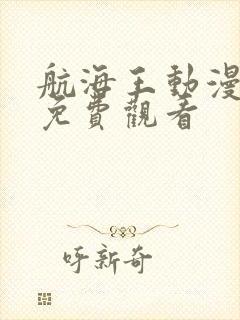 航海王動漫
免費觀看
呼新奇